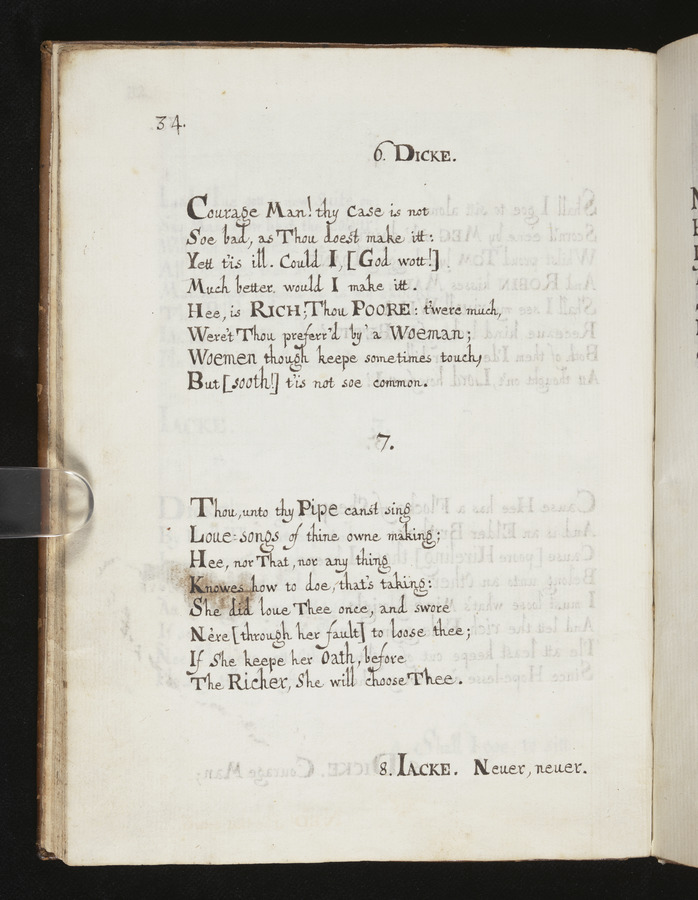 34.
6. DICKE.
Courage Man! thy case is not
Soe bad, as Thou doest make itt:
Yett t'is ill. Could I, [God wott!]
Much better, would I make itt.
Hee, is RICH; Thou POORE: t'were much,
Were't Thou preferr'd by a Woeman;
Woemen though keepe sometimes touch,
But [sooth!] t'is not soe common.
7.
Thou, unto thy Pipe canst sing
Loue-songs of thine owne making;
Hee, nor That, nor any thing
Knowes how to doe, that's taking:
She did loue Thee once, and swore
Nere [through her fault] to loose thee;
If She keepe her Oath, before
The Richer, She will choose Thee.
8. IACKE. Neuer, neuer.